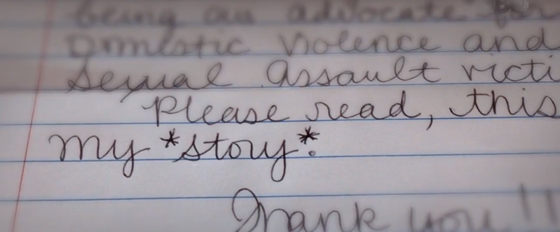 being an advocate for
Domestic Violence and
Sexual Assault victi
Please read, this
my *story*.
Thank you!!